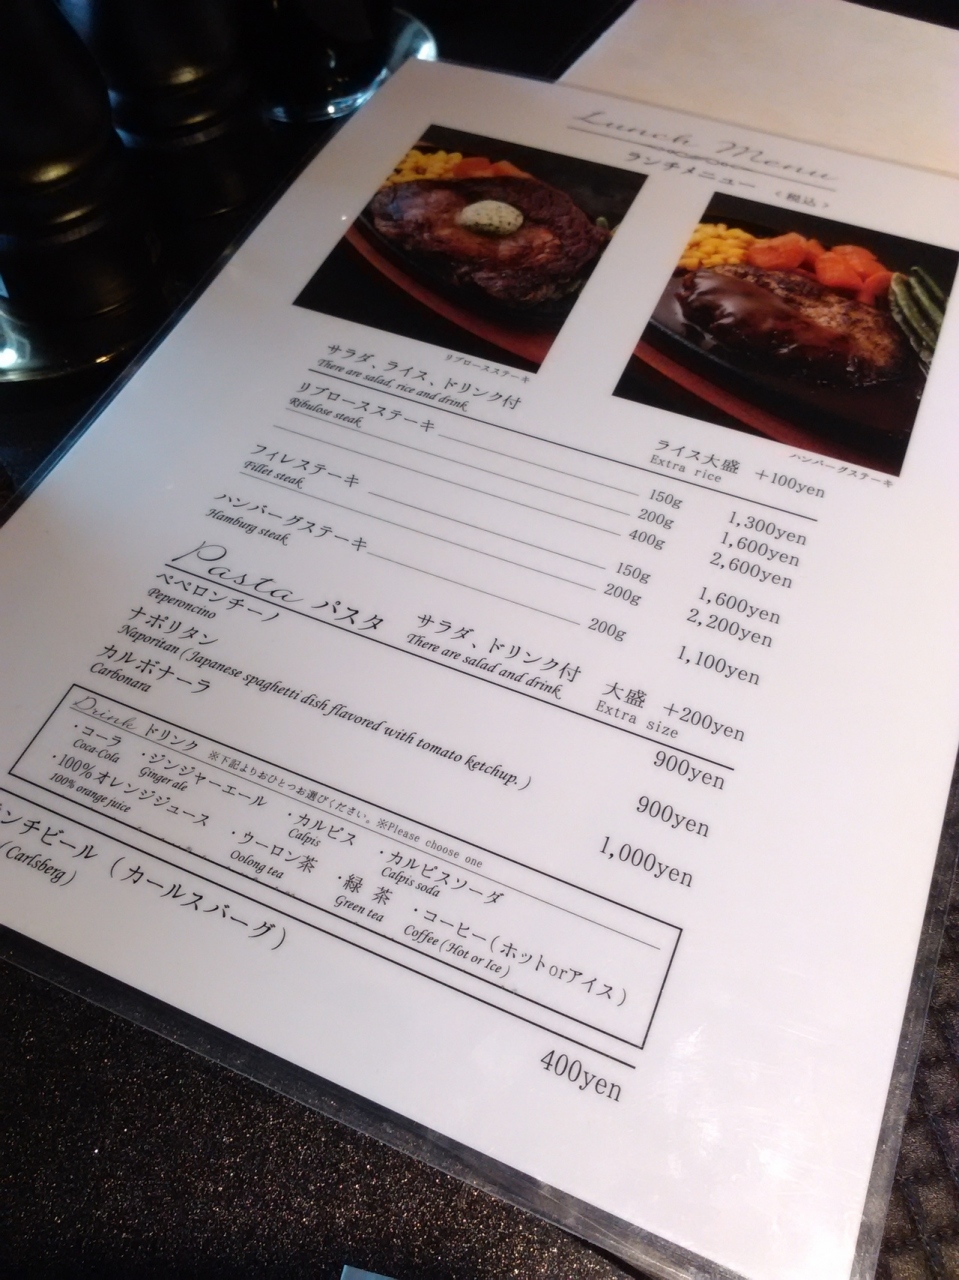 Lunch Menu
ランチメニュー <税込>
リブロースステーキ
ハンバーグステーキ
サラダ、ライス、ドリンク付 ライス大盛 +100yen
There are salad, rice and drink Extra rice
リブロースステーキ 150g 1,300yen
Ribulose steak 200g 1,600yen
400g 2,600yen
フィレステーキ 150g 1,600yen
Fillet steak 200g 2,200yen
ハンバーグステーキ 200g 1,100yen
Hamburg steak
Pasta パスタ サラダ、ドリンク付 大盛 +200yen
There are salad and drink Extra size
ペペロンチーノ 900yen
Peperoncino
ナポリタン 900yen
Naporitan (Japanese spaghetti dish flavored with tomato ketchup.)
カルボナーラ 1,000yen
Carbonara
Drink ドリンク ※下記よりおひとつお選びください。※Please choose one
・コーラ ・ジンジャーエール ・カルピス ・カルピスソーダ
Coca-Cola Ginger ale Calpis Calpis soda
・100%オレンジジュース ・ウーロン茶 ・緑 茶 ・コーヒー(ホットorアイス)
100% orange juice Oolong tea Green tea Coffee (Hot or Ice)
ンチビール (カールスバーグ) 400yen
(Carlsberg)